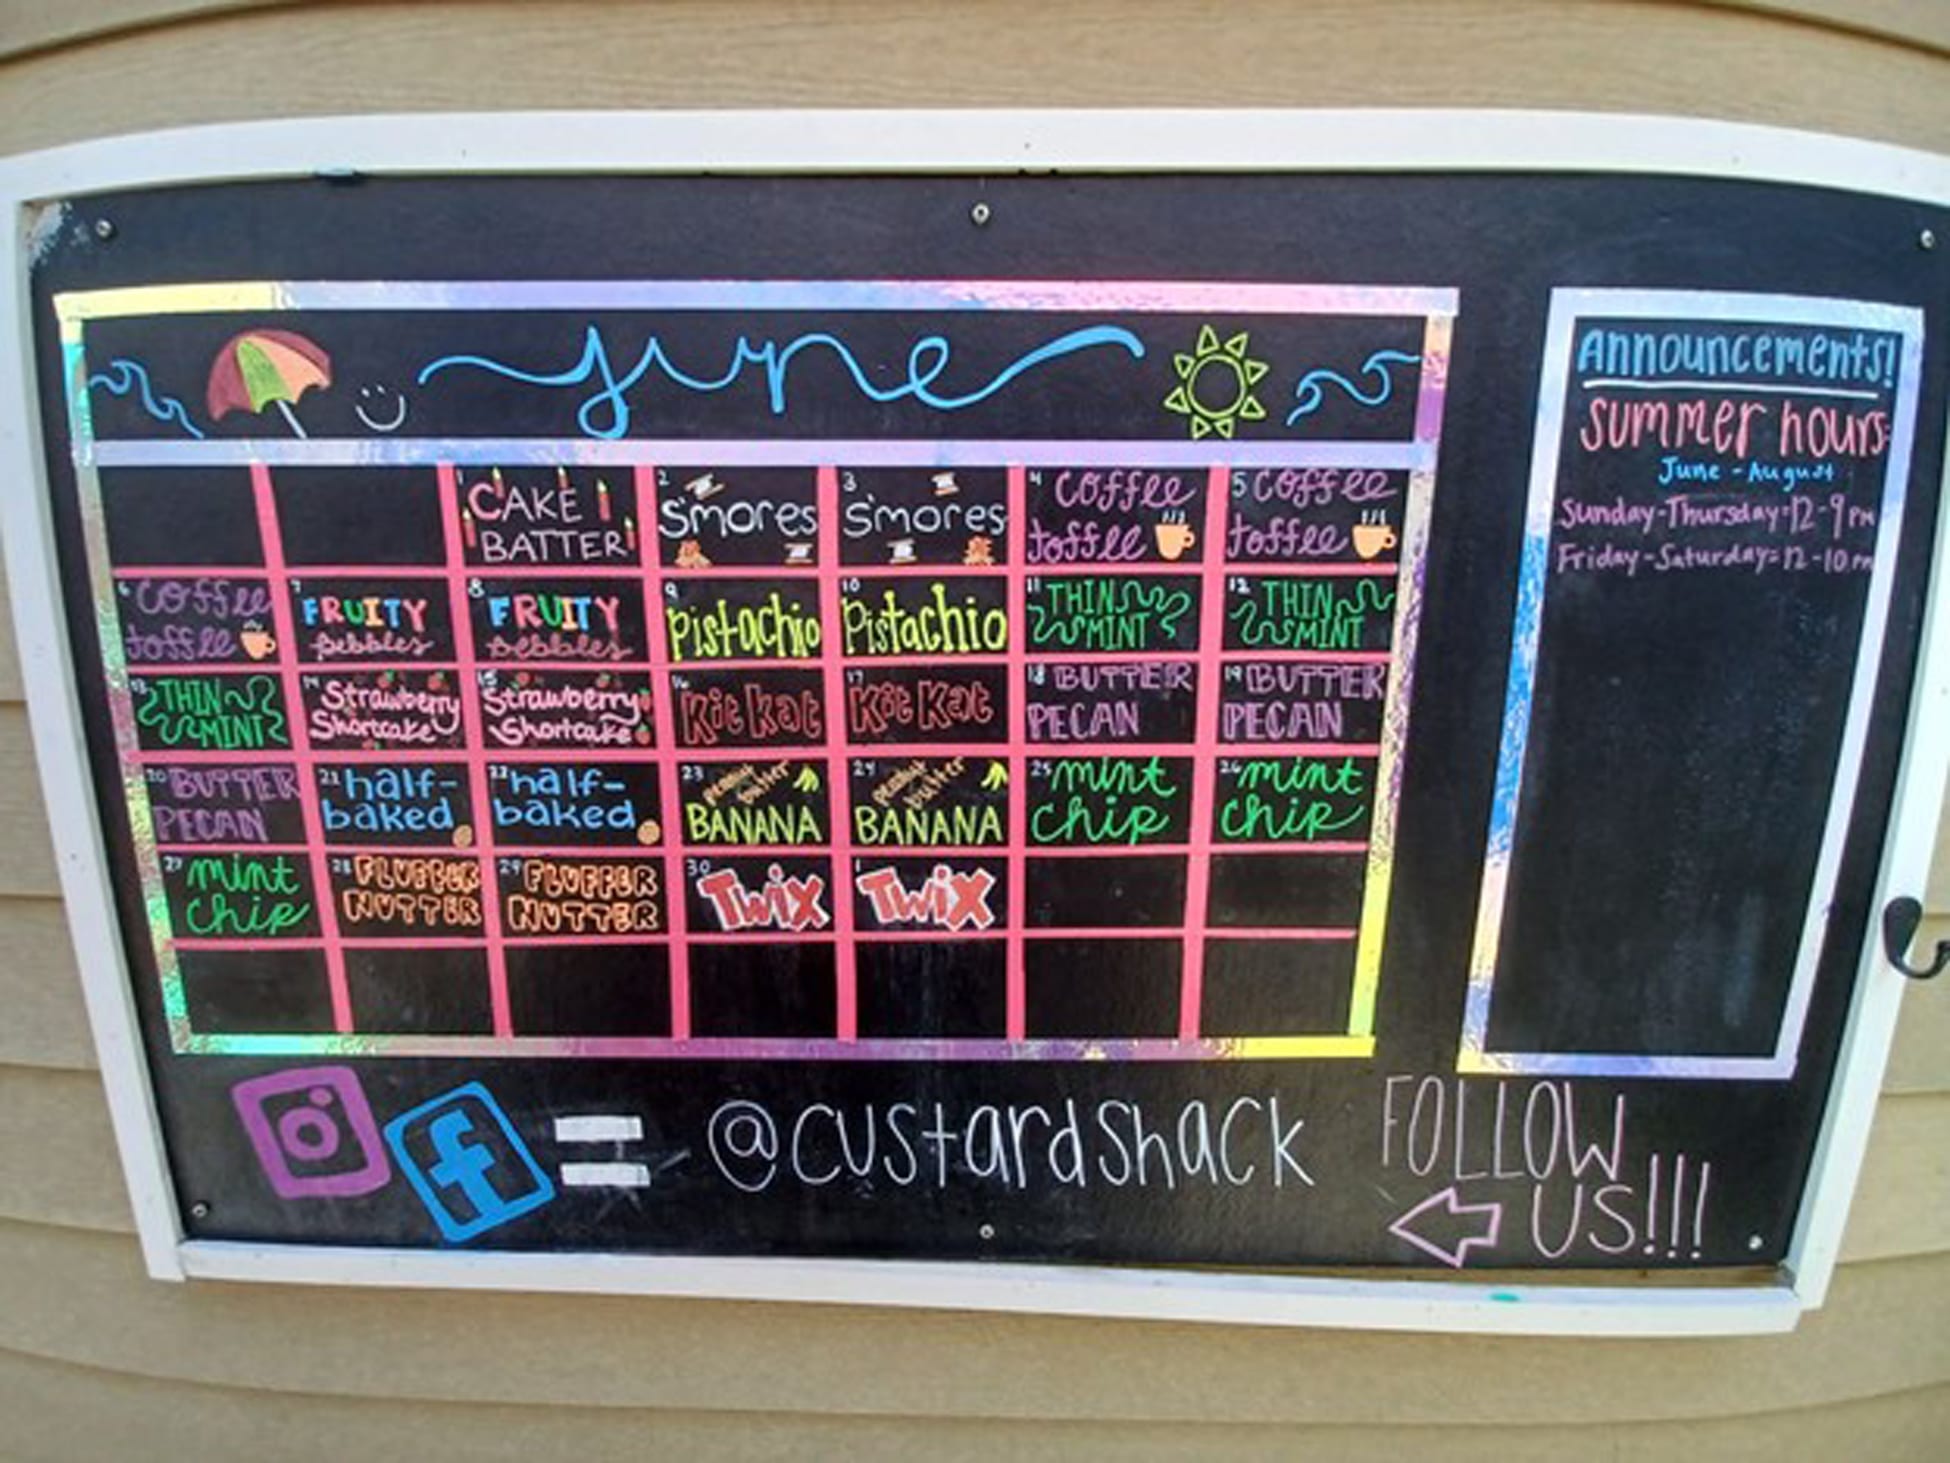 june
Announcements!
summer hours:
June - August
Sunday-Thursday=12-9pm
Friday-Saturday=12-10pm
1 CAKE
BATTER
2 S'mores
3 S'mores
4 coffee
toffee
5 coffee
toffee
6 coffee
toffee
7 FRUITY
pebbles
8 FRUITY
pebbles
9 Pistachio
10 Pistachio
11 THIN
MINT
12 THIN
MINT
13 THIN
MINT
14 Strawberry
Shortcake
15 Strawberry
Shortcake
16 Kit Kat
17 Kit Kat
18 BUTTER
PECAN
19 BUTTER
PECAN
20 BUTTER
PECAN
21 half-
baked
22 half-
baked
23 peanut
butter
BANANA
24 peanut
butter
BANANA
25 mint
chip
26 mint
chip
27 mint
chip
28 FLUFFER
NUTTER
29 FLUFFER
NUTTER
30 TWIX
1 TWIX
f = @custardshack
FOLLOW
US!!!